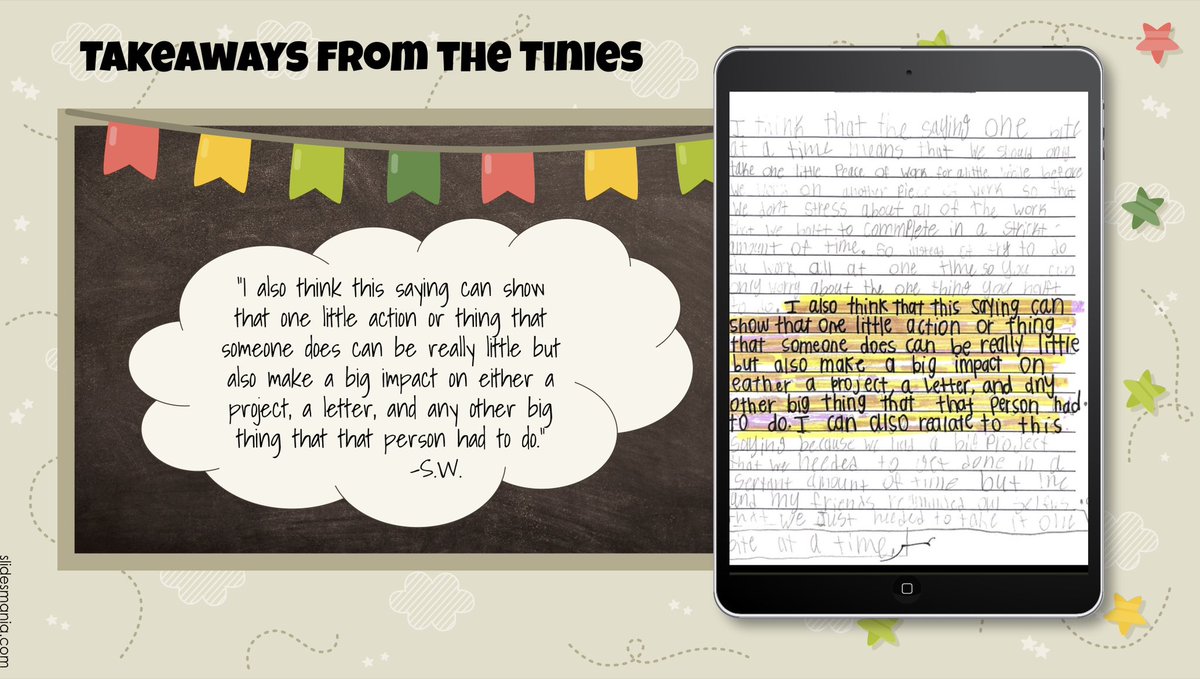 Takeaways from the Tinies
"I also think this saying can show
that one little action or thing that
someone does can be really little but
also make a big impact on either a
project, a letter, and any other big
thing that that person had to do."
-S.W.
I think that the saying one bite
at a time means that we should only
take one little Peace of work for a little while before
we work on another Piece of work so that
we don't stress about all of the work
that we haft to commplete in a strict
amount of time. So instead of try to do
the work all at one time so you can
only worry about the one thing you haft
to do. I also think that this saying can
show that one little action or thing
that someone does can be really little
but also make a big impact on
eather a project, a letter, and any
other big thing that that person had
to do. I can also realate to this
saying because we had a big Project
that we needed to get done in a
sertant amount of time but me
and my friends reminded our selfs
that we Just needed to take it one
bite at a time.
slidesmania.com